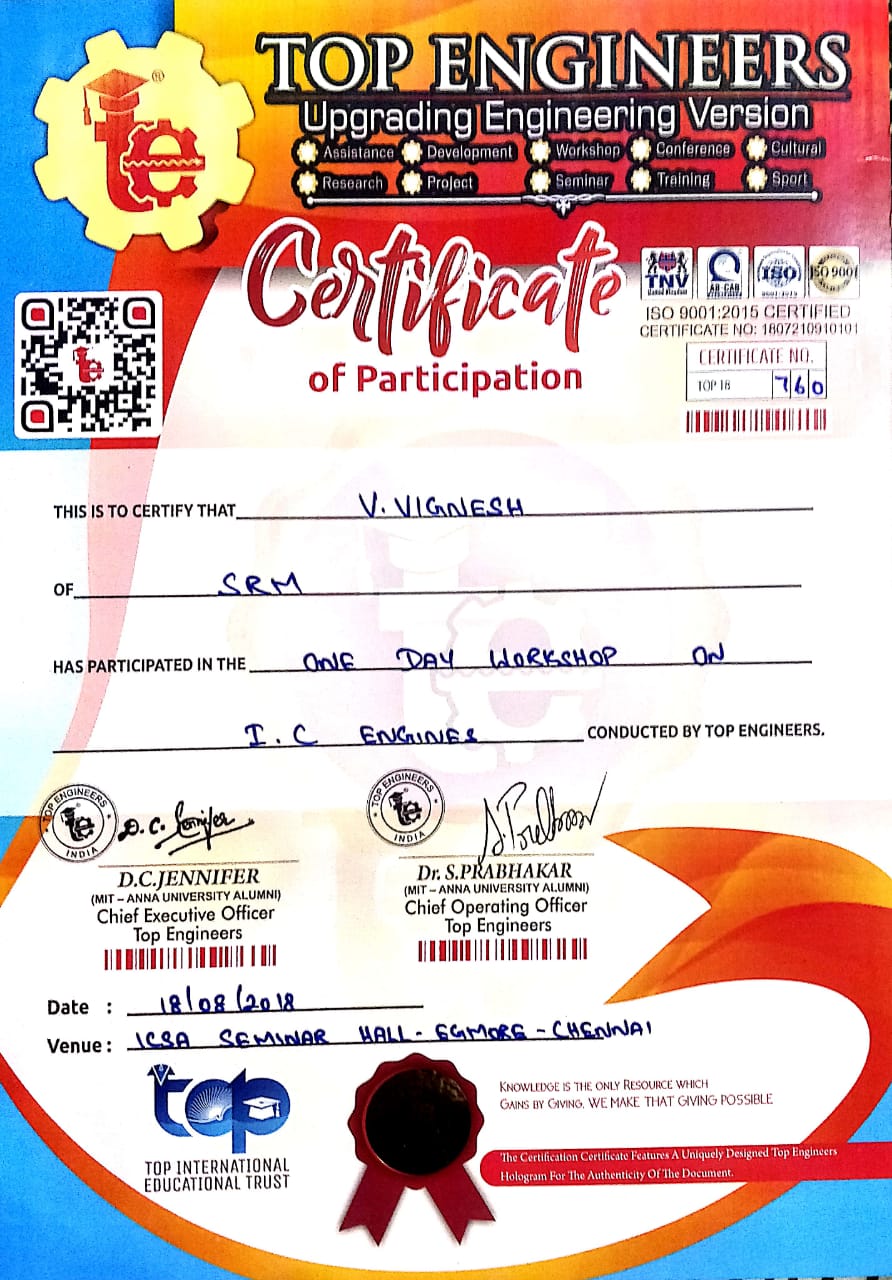 TOP ENGINEERS
Upgrading Engineering Version
Assistance Development Workshop Conference Cultural
Research Project Seminar Training Sport
te ®
Certificate
of Participation
TNV AR-CAB ISO ISO 9001
ISO 9001:2015 CERTIFIED
CERTIFICATE NO: 1807210910101
CERTIFICATE NO.
TOP 18 760
THIS IS TO CERTIFY THAT V. VIGNESH
OF SRM
HAS PARTICIPATED IN THE ONE DAY WORKSHOP ON
I.C ENGINES CONDUCTED BY TOP ENGINEERS.
TOP ENGINEERS te INDIA
D.C. Jennifer
TOP ENGINEERS te INDIA
D.C.JENNIFER
(MIT – ANNA UNIVERSITY ALUMNI)
Chief Executive Officer
Top Engineers
Dr. S.PRABHAKAR
(MIT – ANNA UNIVERSITY ALUMNI)
Chief Operating Officer
Top Engineers
Date : 18/08/2018
Venue : ICSA SEMINAR HALL - EGMORE - CHENNAI
top
TOP INTERNATIONAL
EDUCATIONAL TRUST
KNOWLEDGE IS THE ONLY RESOURCE WHICH
GAINS BY GIVING, WE MAKE THAT GIVING POSSIBLE
The Certification Certificate Features A Uniquely Designed Top Engineers
Hologram For The Authenticity Of The Document.